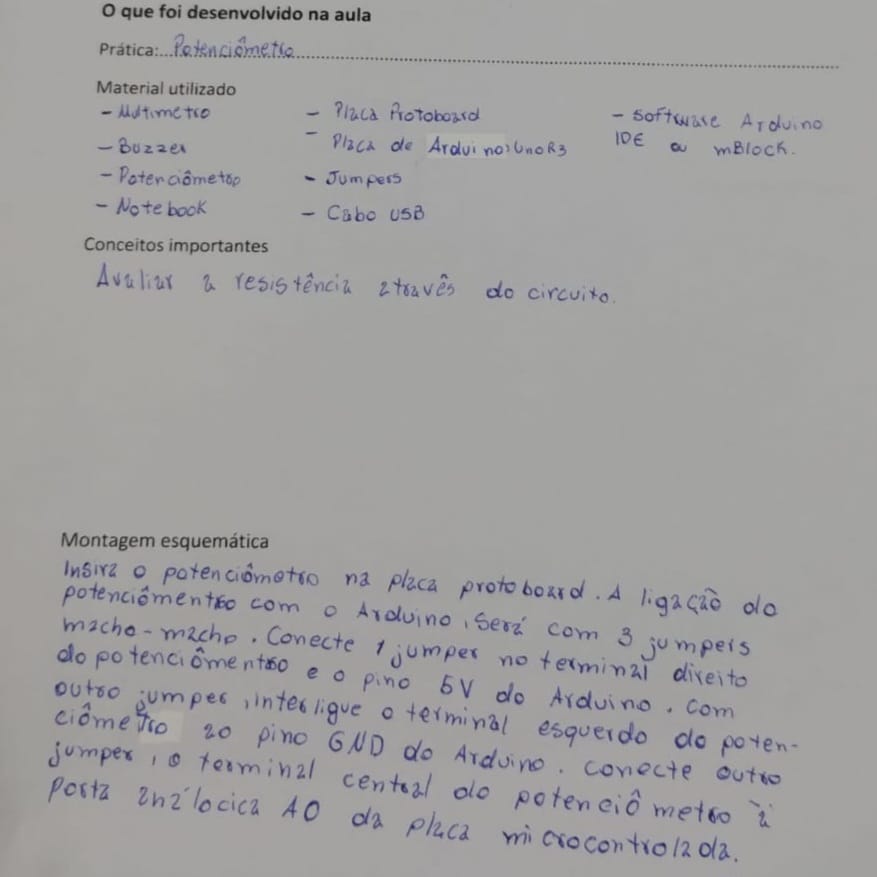 O que foi desenvolvido na aula
Prática:...Potenciômetro
Material utilizado
- Multimetro
- Placa Protoboard
- Software Arduino
IDE ou mBlock.
- Buzzer
- Placa de Arduino:UnoR3
- Potenciômetro
- Jumpers
- Notebook
- Cabo USB
Conceitos importantes
Avaliar a resistência atravês do circuito.
Montagem esquemática
Insira o potenciômotro na placa protoboard. A ligação do
potenciômentro com o Arduino, será com 3 jumpers
macho-macho. Conecte 1 jumper no terminal direito
do potenciômentro e o pino 5V do Arduino. Com
outro jumper, interligue o terminal esquerdo do poten-
ciômetro ao pino GND do Arduino. Conecte outro
jumper, o terminal central do potenciômetro à
porta análocica A0 da placa microcontrolada.